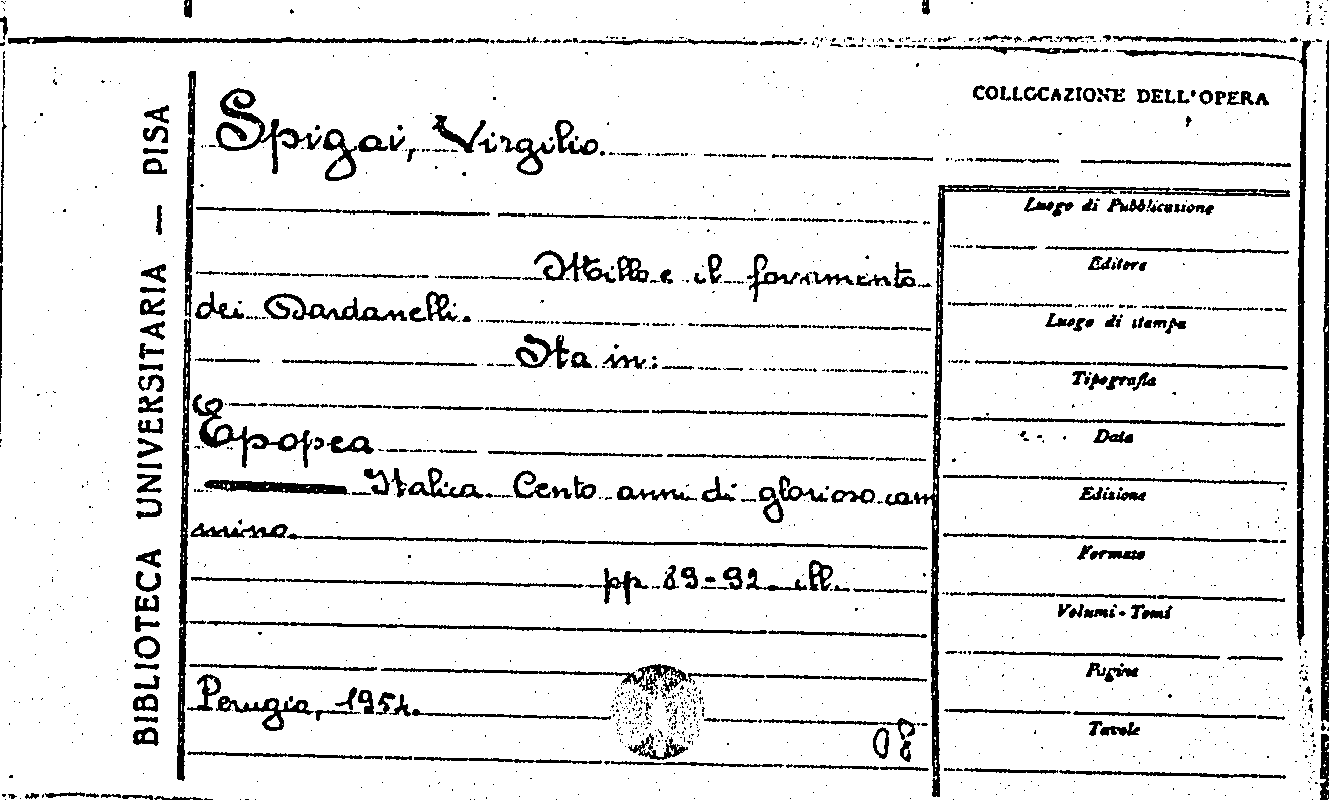 BIBLIOTECA UNIVERSITARIA — PISA
COLLOCAZIONE DELL'OPERA
Spigai, Virgilio.
Millo e il foramento
dei Dardanelli.
Sta in:
Epopea
Italica. Cento anni di glorioso cam
mino.
pp 89-92. ill.
Perugia, 1954.
08
Luogo di Pubblicazione
Editore
Luogo di stampa
Tipografia
Data
Edizione
Formato
Volumi - Tomi
Pagine
Tavole